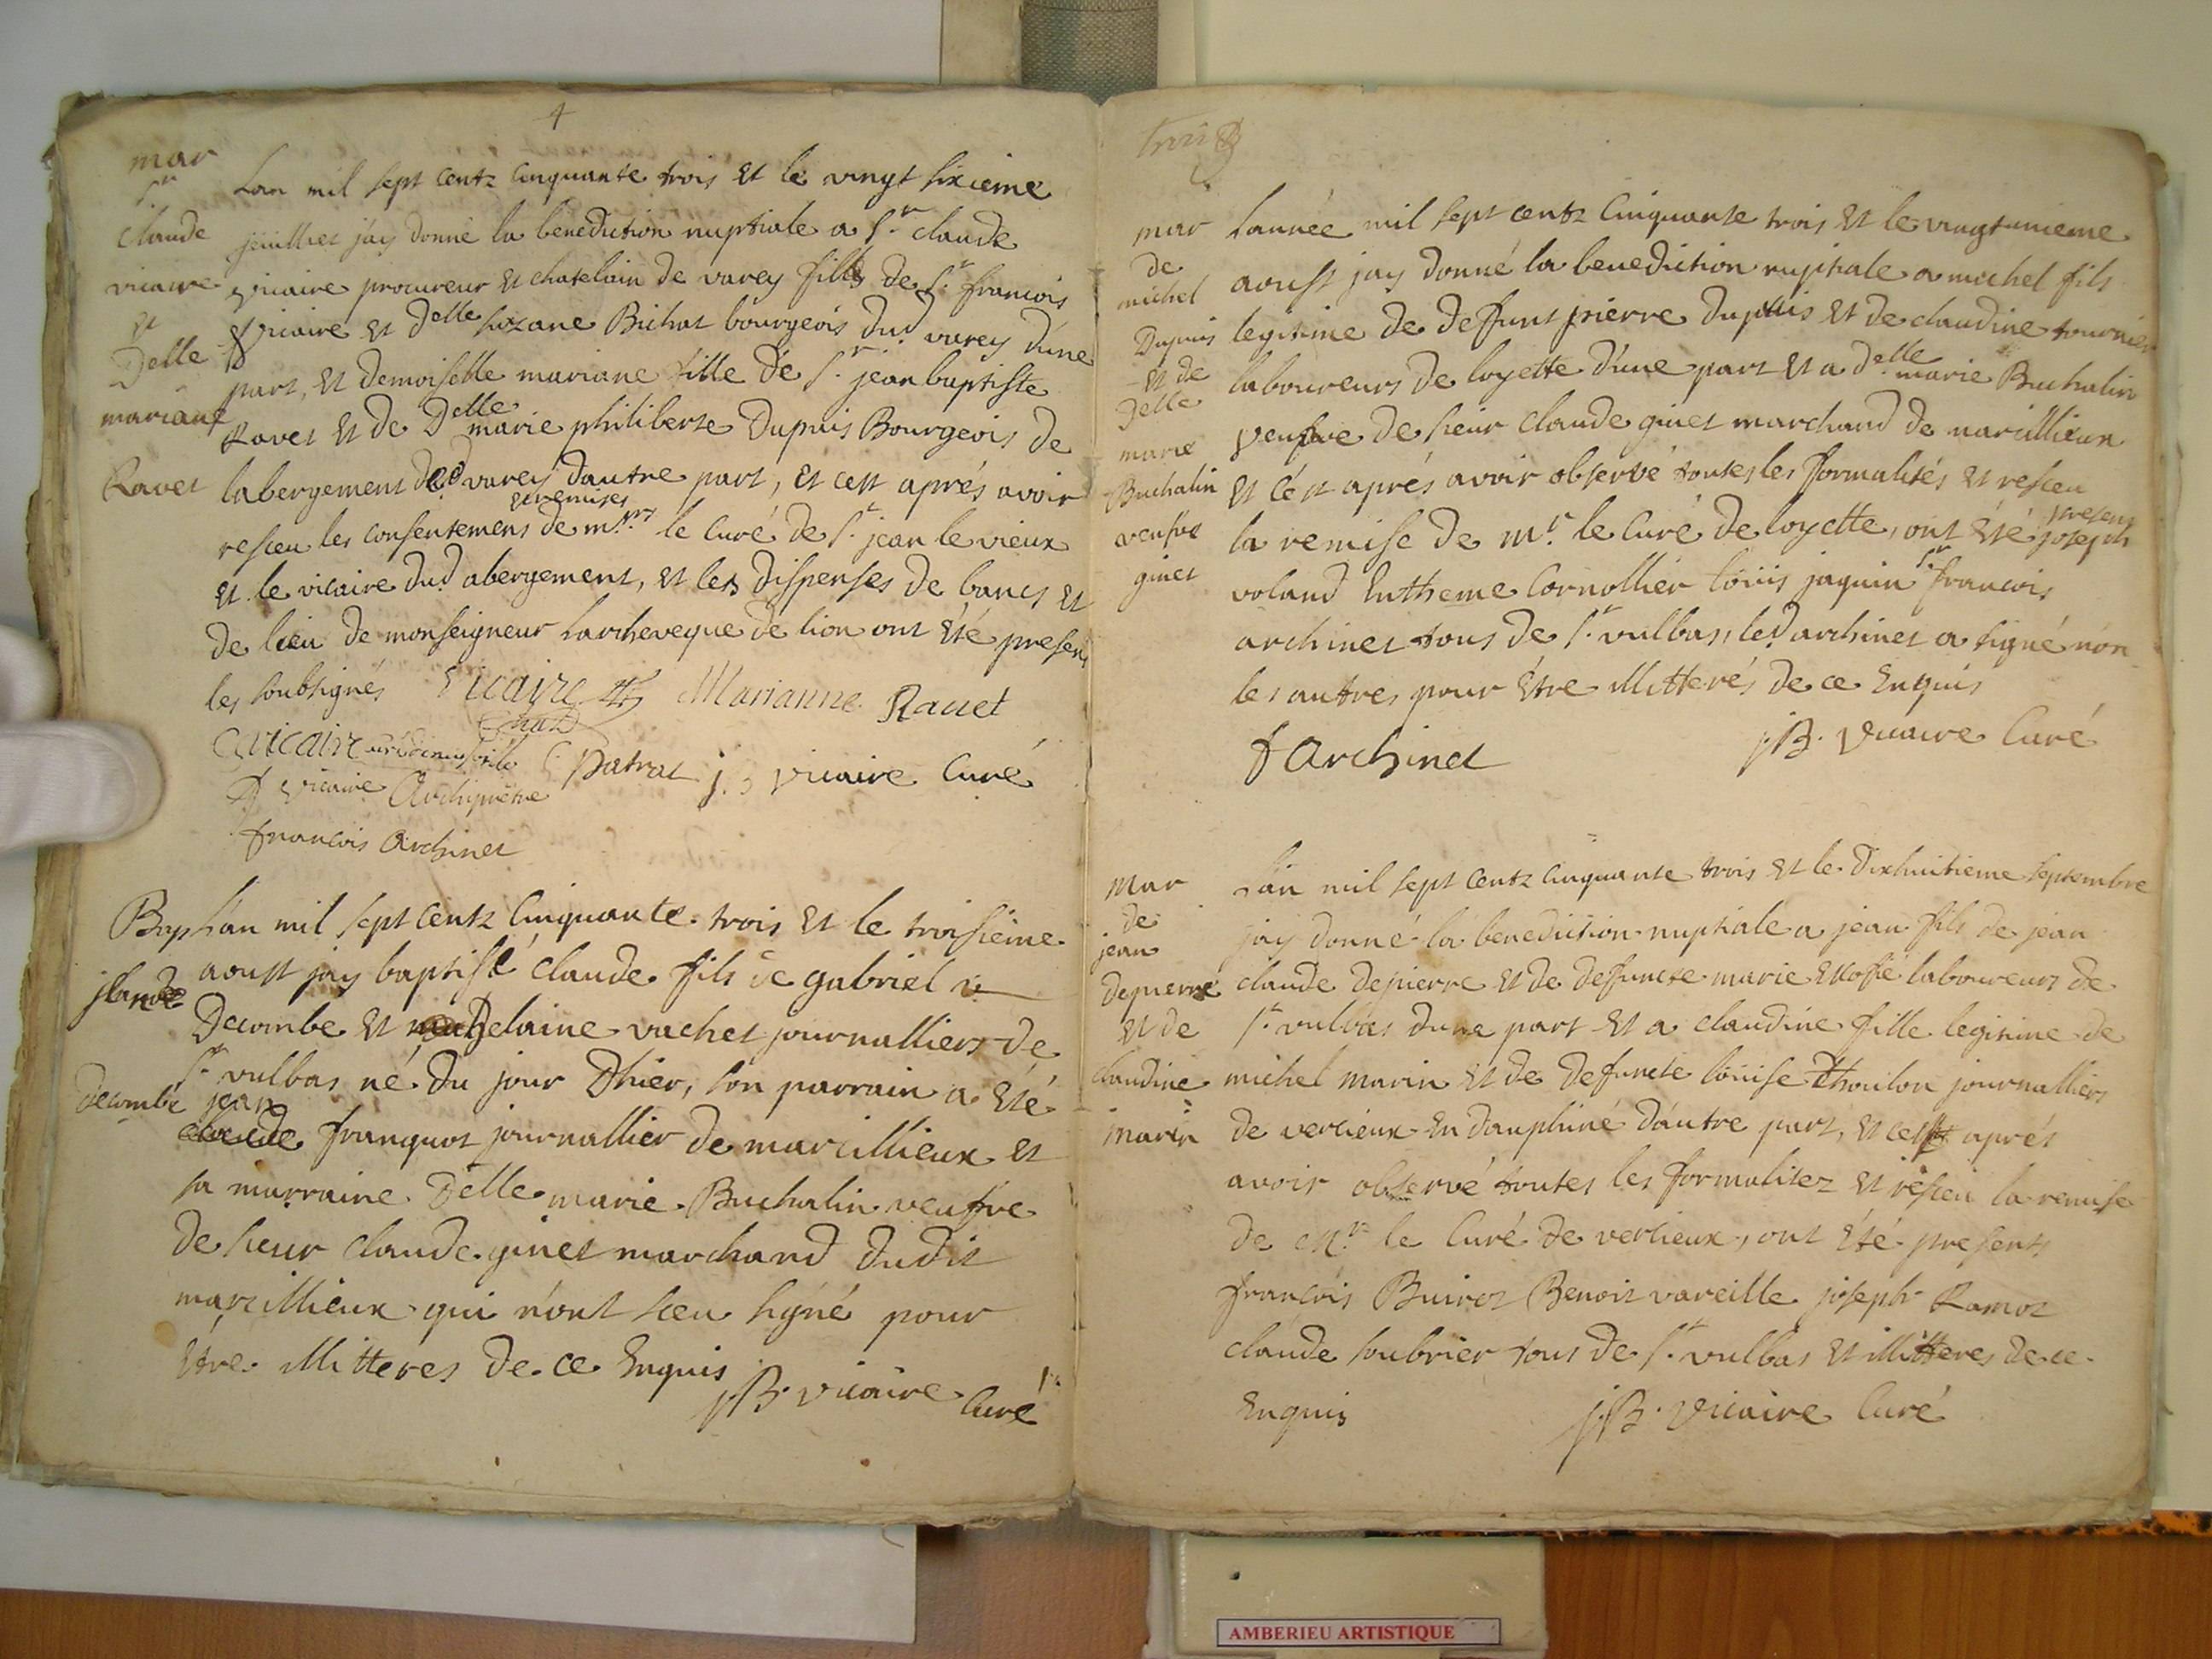 4
mar
Sr
claude
vicaire
et
Delle
mariane
Ravet
Lan mil sept centz cinquante trois et le vingt sixieme
juilliet j'ay donné la benediction nuptiale a Sr. claude
vicaire procureur et chatelain de varey fills de Sr. francois
vicaire et Delle suzane Bichat bourgeois dud. varey d'une
part, et demoiselle mariane fille de Sr. jean baptiste
Ravet et de Delle marie philiberte Dupuis Bourgeois de
labergement de varey dautre part, et cest aprés avoir
resceu les consentemens et remises de mrs. le Curé de St. jean le vieux
et le vicaire dud. abergement, et les dispenses de bancs et
de lieu de monseigneur Larcheveque de lion ont été presens
les soubsignés Vicaire Marianne Rauet
Vicaire
Patrat j. B vicaire Curé
Vicaire Archiprêtre
françois Archinet
Bap
de
claude
Decombe
Lan mil sept centz cinquante trois et le troisieme
aoust jay baptisé claude fils de gabriel
Decombe et madelaine vachet journalliers de
St. vulbas né du jour Dhier, son parrain a été
jean
claude franquot journallier de marcillieux et
sa marraine Delle marie Buchalin veufve
de sieur claude ginet marchand dudit
marcillieux qui n'ont sceu signé pour
être illitteres de ce enquis
jB. vicaire Curé
trois
mar
de
michel
Dupuis
et de
Delle
marie
Buchalin
veufve
ginet
Lannée mil sept centz cinquante trois et le vingtunieme
aoust jay donné la benediction nuptiale a michel fils
legitime de deffunt pierre dupuis et de claudine tournier
laboureurs de loyette d'une part et a delle marie Buchalin
veufve de sieur claude ginet marchand de marcillieux
et cést aprés avoir observé toutes les formalités et resceu
la remise de mr. le Curé de loyette, ont été presens joseph
voland Entheme Cornollier loüis jaquin Sr. francois
archinet tous de St. vulbas, led. archinet a signé non
les autres pour être illitterés de ce Enquis
f Archinet jB. Vicaire Curé
mar
de
jean
Depierre
et de
claudine
marin
Lan mil sept centz cinquante trois et le dixhuitieme septembre
jay donné la benediction nuptiale a jean fils de jean
claude depierre et de deffuncte marie Escofié laboureurs de
St. vulbas dune part et a claudine fille legitime de
michel marin et de defuncte loüise Thoulon journalliers
de vercieux en dauphiné dáutre part, et cest aprés
avoir observé toutes les formalitez et resceu la remise
de mr. le Curé de vercieux, ont été presents
francois Buirot Benoit vareille joseph Ramot
claude soubrier tous de St. vulbas et illitteres de ce
Enquis jB. Vicaire Curé
AMBERIEU ARTISTIQUE